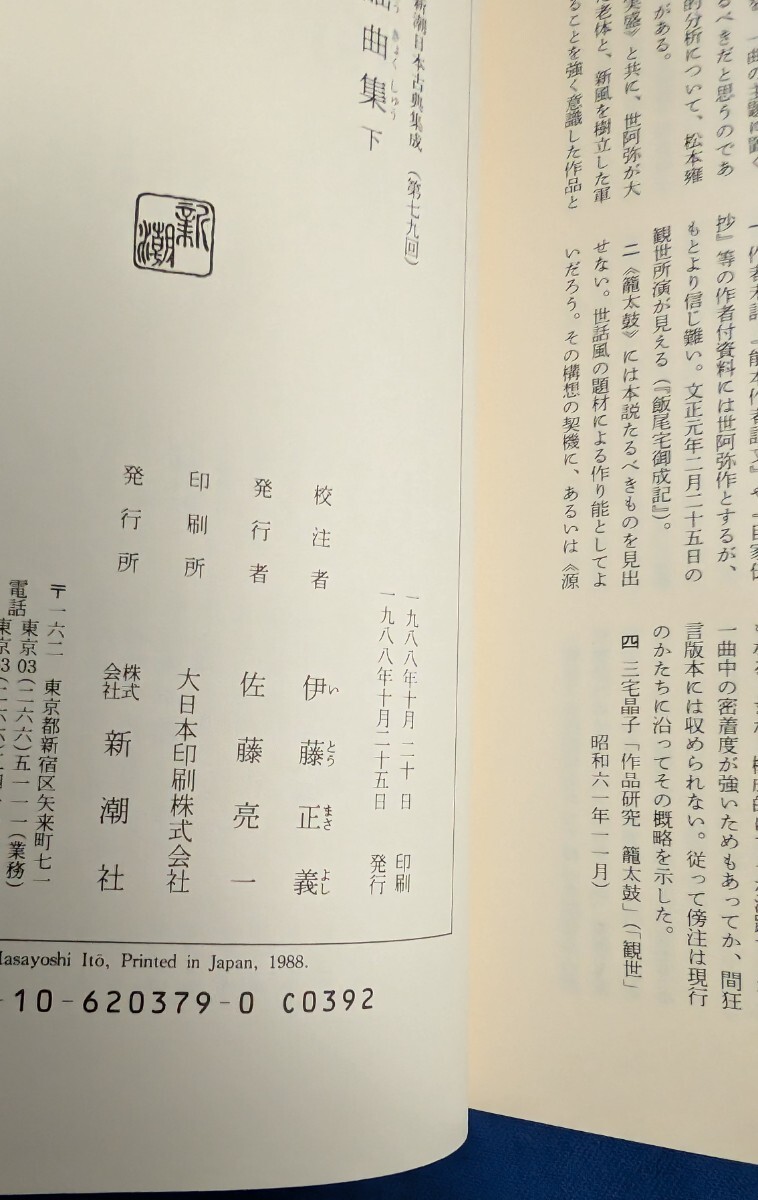 を、一曲の主題に置く
るべきだと思うのであ
的分析について、松本雍
がある。
実盛》と共に、世阿弥が大
た老体と、新風を樹立した軍
ることを強く意識した作品と
抄』等の作者付資料には世阿弥作とするが、
もとより信じ難い。文正元年二月二十五日の
観世所演が見える(『飯尾宅御成記』)。
二 《籠太鼓》には本説たるべきものを見出
せない。世話風の題材による作り能としてよ
いだろう。その構想の契機に、あるいは《源
一曲中の密着度が強いためもあってか、間狂
言版本には収められない。従って傍注は現行
のかたちに沿ってその概略を示した。
四 三宅晶子「作品研究 籠太鼓」(「観世」
昭和六一年一一月)
新潮日本古典集成 (第七九回)
謡曲集 下
きょくしゅう
新潮
一九八八年十月 二十 日 印刷
一九八八年十月二十五日 発行
校注者 伊藤正義
いとうまさよし
発行者 佐藤亮一
印刷所 大日本印刷株式会社
発行所 株式会社 新潮社
〒一六二 東京都新宿区矢来町七一
電話 東京03(二六六)五一一一(業務)
Masayoshi Itō, Printed in Japan, 1988.
-10-620379-0 C0392